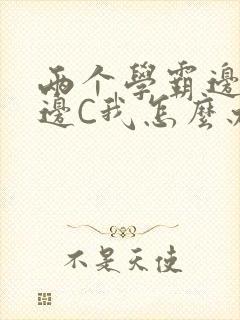 两个學霸邊
邊C我怎麼
不是天使